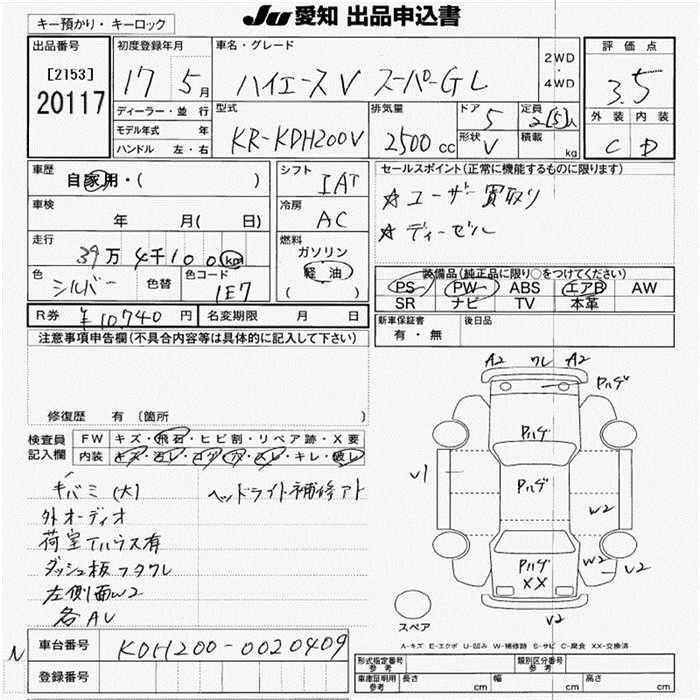 キー預かり・キーロック
JU 愛知 出品申込書
出品番号
[2153]
20117
初度登録年月
17 5月
車名・グレード
ハイエースV スーパーGL
2WD
・
4WD
評価点
3.5
ディーラー・並行
モデル年式 年
ハンドル 左・右
型式
KR-KDH200V
排気量
2500 cc
ドア
5
形状
V
定員
2[5]人
積載
kg
外装 内装
C D
車歴
自家用・( )
シフト
IAT
車検
年 月( 日)
冷房
AC
走行
39万 4千100km
燃料
ガソリン
軽油
( )
色
シルバー
色替
色コード
1E7
セールスポイント(正常に機能するものに限ります)
☆ユーザー買取り
☆ディーゼル
装備品(純正品に限り○をつけてください)
PS PW ABS エアB AW
SR ナビ TV 本革
R券 ¥10,740 円
名変期限 月 日
新車保証書
有・無
後日品
注意事項申告欄(不具合内容等は具体的に記入して下さい)
修復歴 有(箇所 )
検査員
記入欄
FW キズ・飛石・ヒビ割・リペア跡・X要
内装 キズ・汚レ・コゲ・穴・スレ・キレ・破レ
キバミ(大)
ヘッドライト補修アト
外オーディオ
荷室
有
ダッシュ板フタワレ
左側面W2
各AU
A2 ワレ A2
Pハゲ
Pハゲ
Pハゲ
U1
W2
Pハゲ
XX
W2
U2
V2
スペア
A-キズ E-エクボ U-凹み W-補修跡 S-サビ C-腐食 XX-交換済
N
車台番号 KDH200-0020409
登録番号
形式指定番号
参考
類別区分番号
参考
車庫証明用
参考
長さ cm 幅 cm 高さ cm